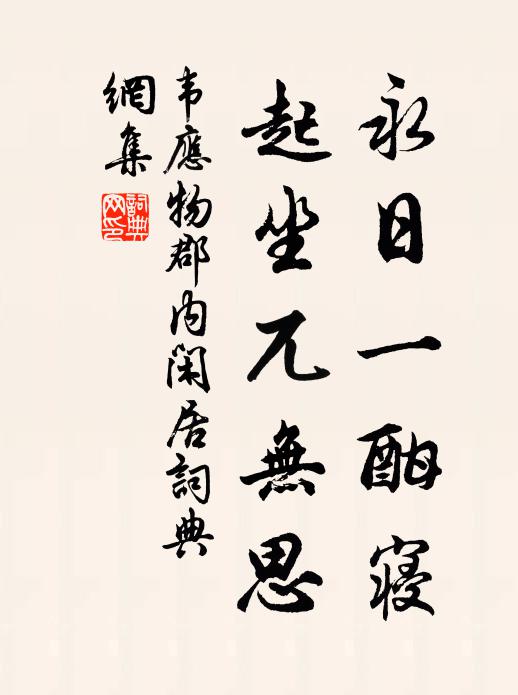 永日一酣寢
起坐兀無思
韦應物郡内閑居詞典
網集
詞典
网印